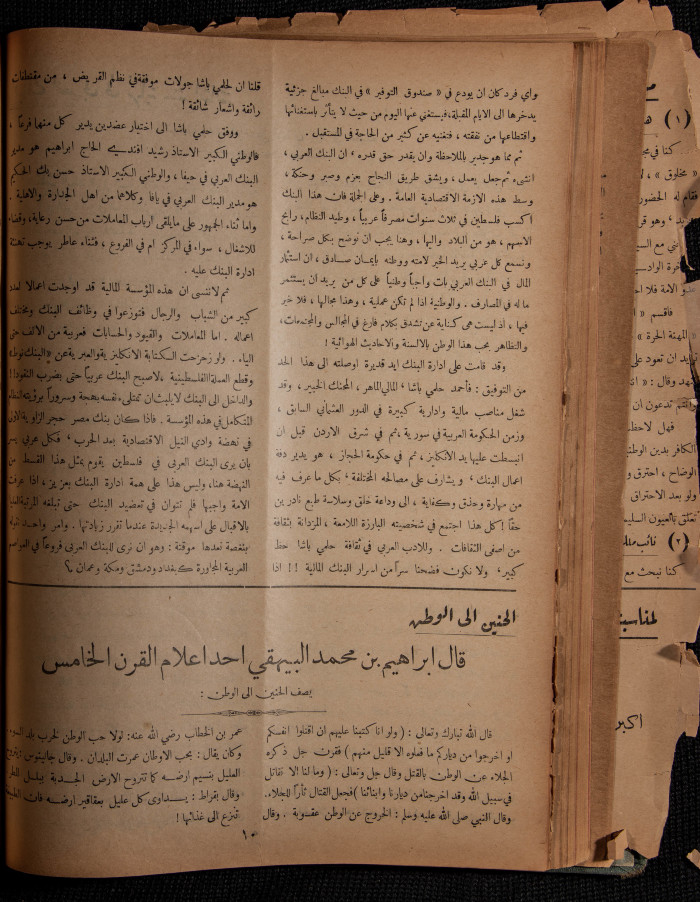 واي فرد كان ان يودع في « صندوق التوفير » في البنك مبالغ جزئية
يدخرها الى الايام المقبلة، فيستغني عنها اليوم من حيث لا يتأثر باستغنائها
واقتطاعها من نفقته ، فتغنيه عن كثير من الحاجة في المستقبل .
ثم مما هو جدير بالملاحظة وان يقدر حق قدره ، ان البنك العربي ،
انشىء ثم جعل يعمل ، ويشق طريق النجاح بعزم وصبر وحنكة ،
وسط هذه الازمة الاقتصادية العامة . وعلى الجملة فان هذا البنك
اكسب فلسطين في ثلاث سنوات مصرفاً عربياً ، وطيد النظام ، رابح
الاسهم ، هو من البلاد واليها ، وهنا يجب ان نوضح بكل صراحة ،
ونسمع كل عربي يريد الخير لامته ووطنه بإيمان صادق ، ان استثمار
المال في البنك العربي بات واجباً وطنياً على كل من يريد ان يستثمر
ماله في المصارف . والوطنية اذا لم تكن عملية ، وهذا مجالها ، فلا خير
فيها ، اذ ليست هي كناية عن تشدق بكلام فارغ في المجالس والمجتمعات،
والتظاهر بحب هذا الوطن بالالسنة والاحاديث الهوائية !
وقد قامت على ادارة البنك ايد قديرة اوصلته الى هذا الحد
من التوفيق : فأحمد حلمي باشا ، المالي الماهر ، المحنك الخبير ، وقد
شغل مناصب مالية وادارية كبيرة في الدور العثماني السابق ،
وزمن الحكومة العربية في سورية ، ثم في شرق الاردن قبل ان
انبسطت عليها يد الانكليز ، ثم في حكومة الحجاز ، هو يدير دفة
اعمال البنك ، ويشارف على مصالحه المختلفة ، بكل ما عرف فيه
من مهارة وحذق وكفاية ، الى وداعة خلق وسلاسة طبع نادرين
حقاً ! كل هذا اجتمع في شخصيته البارزة اللامعة ، المزدانة بثقافة
من اصفى الثقافات . وللادب العربي في ثقافة حلمي باشا حظ
كبير ، ولا نكون فضحنا سراً من اسرار البنك المالية !! اذا
قلنا ان لحلمي باشا جولات موفقة في نظم القريض ، من مقتطفات
رائقة واشعار شائقة !
ووفق حلمي باشا الى اختيار عضدين يدير كل منهما فرعاً ،
فالوطني الكبير الاستاذ رشيد افندي الحاج ابراهيم هو مدير
البنك العربي في حيفا ، والوطني الكبير الاستاذ حسن بك الحكيم
هو مدير البنك العربي في يافا وكلاهما من اهل الجدارة والاهلية .
واما ثناء الجمهور على ما يلقى ارباب المعاملات من حسن رعاية، وقضاء
للاشغال ، سواء في المركز ام في الفروع ، فثناء عاطر يوجب تهنئة
ادارة البنك عليه .
ثم لا ننسى ان هذه المؤسسة المالية قد اوجدت اعمالا لعدد
كبير من الشباب والرجال فتوزعوا في وظائف البنك ومختلف
اعماله . اما المعاملات والقيود والحسابات فعربية من الالف حتى
الياء . ولو زحزحت الكتابة الانكليزية والعبرية عن «البنكنوط»
وقطع العملة الفلسطينية ، لاصبح البنك عربياً حتى بضرب النقود!
والداخل الى البنك لا يلبث ان تمتلىء نفسه بهجة وسروراً برؤيته النظام
المتكامل في هذه المؤسسة . فاذا كان بنك مصر حجر الزاوية الاولى
في نهضة وادي النيل الاقتصادية بعد الحرب ، فكل عربي يسر
بان يرى البنك العربي في فلسطين يقوم بمثل هذا القسط من
النهضة هنا، وليس هذا على همة ادارة البنك بعزيز ، اذا عرفت
الامة واجبها فلم تتوان في تعضيد البنك حتى تبلغه المرتبة العليا
بالاقبال على اسهمه الجديدة عندما تقرر زيادتها . وامر واحد
نقصه نعدها موقتة : وهو ان نرى للبنك العربي فروعاً في العواصم
العربية المجاورة كبغداد ودمشق ومكة وعمان .؟
الحنين الى الوطن
قال ابراهيم بن محمد البيهقي احد اعلام القرن الخامس
يصف الحنين الى الوطن :
قال الله تبارك وتعالى : ( ولو انا كتبنا عليهم ان اقتلوا انفسكم
او اخرجوا من دياركم ما فعلوه الا قليل منهم ) فقرن جل ذكره
الجلاء عن الوطن بالقتل وقال جل وتعالى : ( وما لنا الا نقاتل
في سبيل الله وقد اخرجنا من ديارنا وابنائنا ) فجعل القتال ثأراً للجلاء.
وقال النبي صلى الله عليه وسلم : الخروج عن الوطن عقوبة . وقال
عمر بن الخطاب رضي الله عنه: لولا حب الوطن لخرب بلد السوء
وكان يقال : بحب الاوطان عمرت البلدان . وقال جالينوس : يتروح
العليل بنسيم ارضه كما تتروح الارض الجدبة ببلل المطر
وقال بقراط : يتداوى كل عليل بعقاقير ارضه فان الطبيعة
تنزع الى غذائها !
١٠
(١)
كنا في
« مخلوق » ،
فقام له الحضور
فاقسم
« المهنة الحرة »
فهل لاحظ
الكافر بدين
ولو بعد الاحتراق
(٢) نائب
كنا نبحث مع
لمناسبة
اكبر